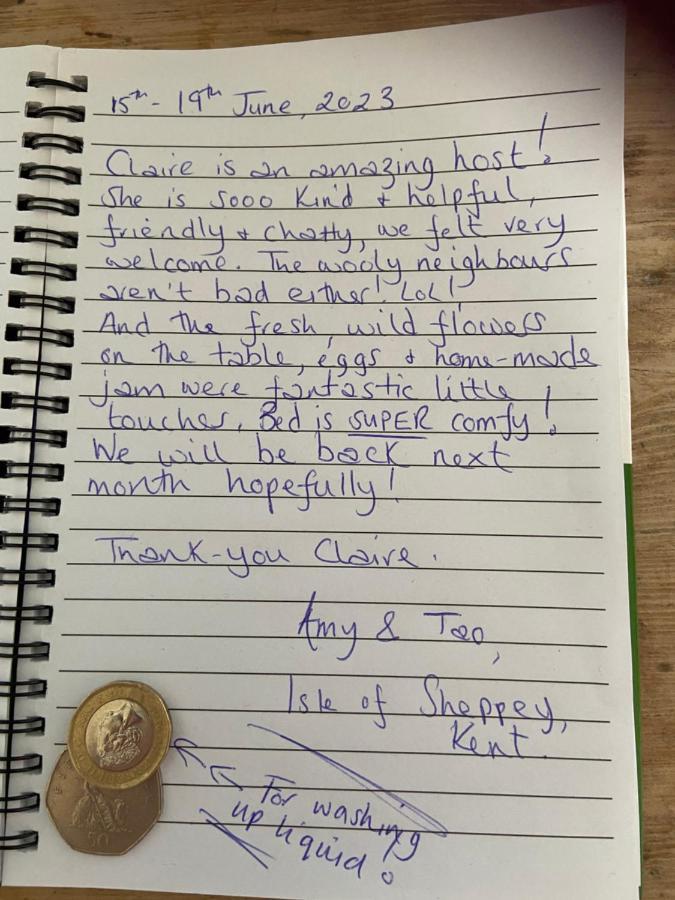 15th - 19th June, 2023
Claire is an amazing host!
She is sooo kind & helpful,
friendly & chatty, we felt very
welcome. The wooly neighbours
aren't bad either! LoL!
And the fresh, wild flowers
on the table, eggs & home-made
jam were fantastic little
touches, Bed is SUPER comfy!
We will be back next
month hopefully!
Thank-you Claire.
Amy & Tao,
Isle of Sheppey,
Kent.
For washing
up liquid!
50